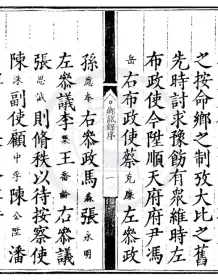 之按命鄉之制攷大比之舊
先時討求豫飭有衆維時左
布政使今陞順天府府尹馮
岳右布政使蔡克廉左叅政
鄉試錄序
一
孫應奎右叅政馬森張永明
左叅議李棐王喬齡右議
張思誠則脩秩以待按察使
陳洙副使顧中孚陳公陞潘